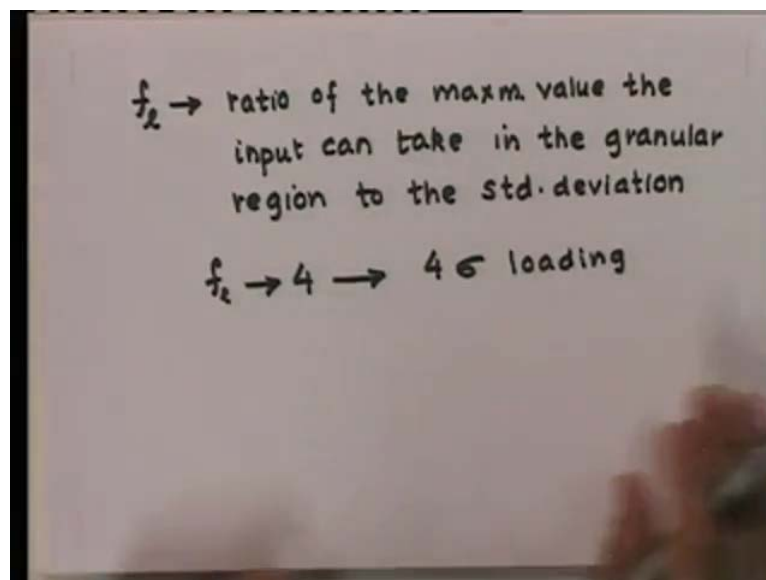 fℓ → ratio of the maxm. value the
input can take in the granular
region to the std. deviation
fℓ → 4 → 4 σ loading